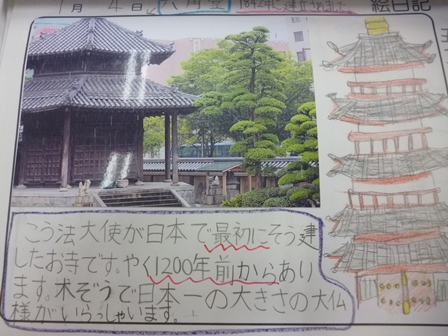 1月4日 六角堂 1842年に建立されました 絵日記
こう法大使が日本で最初にそう建
したお寺です。やく1200年前からあり
ます。木ぞうで日本一の大きさの大仏
様がいらっしゃいます。